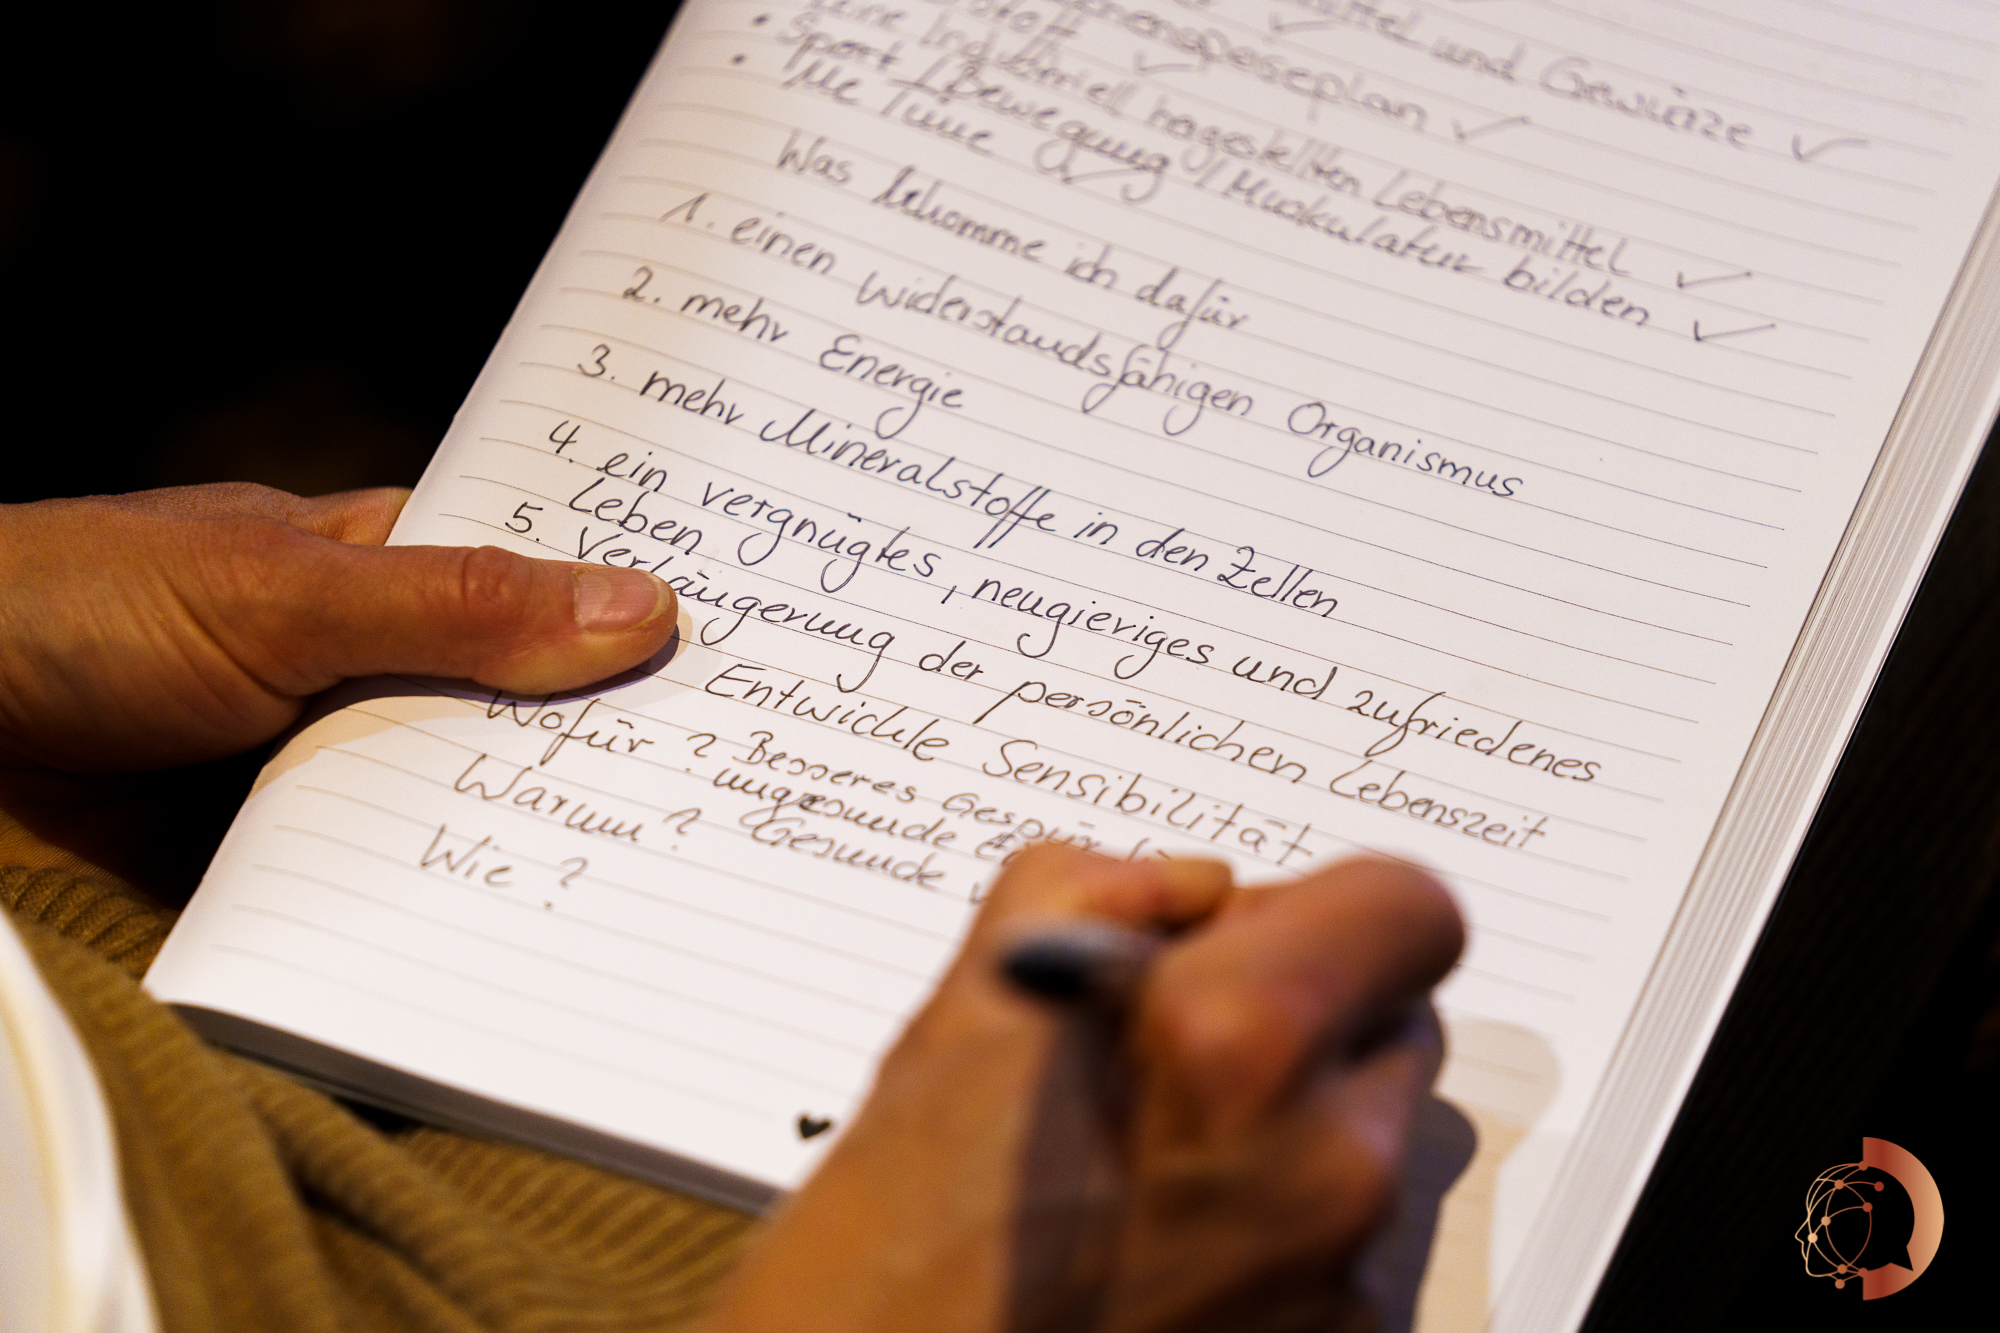 und Gewürze ✓
✓
keine Industriell hergestellten Lebensmittel ✓
• Sport / Bewegung / Muskulatur bilden ✓
• Me Time ✓
Was bekomme ich dafür
1. einen widerstandsfähigen Organismus
2. mehr Energie
3. mehr Mineralstoffe in den Zellen
4. ein vergnügtes, neugieriges und zufriedenes
Leben
5. Verlängerung der persönlichen Lebenszeit
Entwickle Sensibilität
Wofür? Besseres Gespür
ungesunde
Warum? Gesunde
Wie?